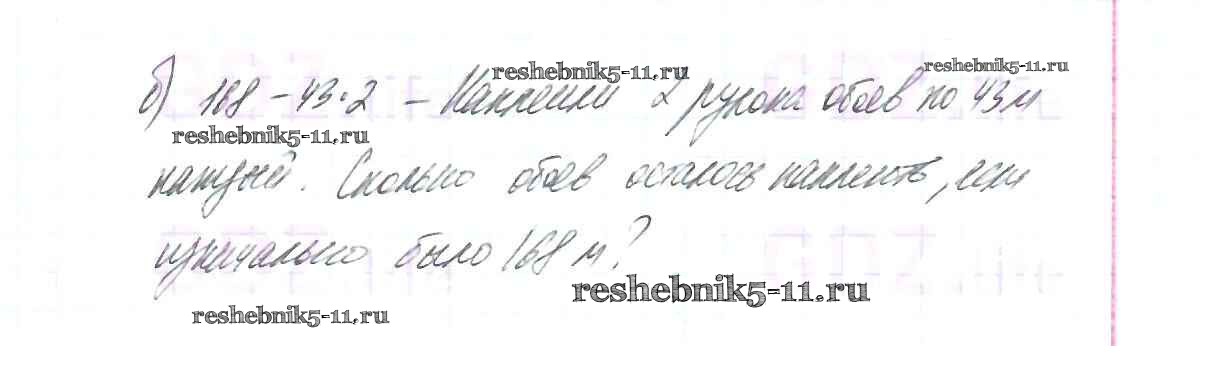 reshebnik5-11.ru
reshebnik5-11.ru
б) 168 - 43·2 - Наклеили 2 рулона обоев по 43 м
reshebnik5-11.ru
каждый. Сколько обоев осталось наклеить, если
изначально было 168 м?
reshebnik5-11.ru
reshebnik5-11.ru